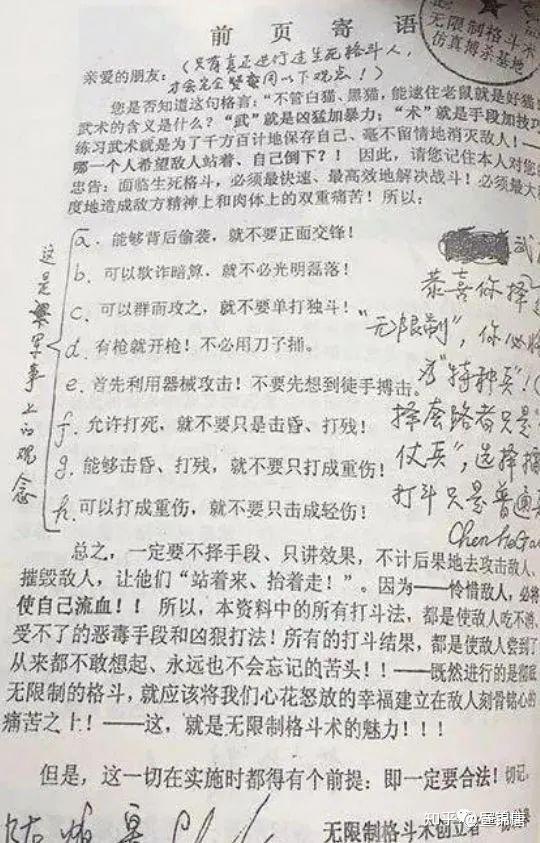 前页寄语
无限制格斗术
仿真搏杀基地
亲爱的朋友：(只有真正进行过生死格斗人，
才会完全 用以下观念！)
您是否知道这句格言：“不管白猫、黑猫，能逮住老鼠就是好猫
武术的含义是什么？“武”就是凶猛加暴力；“术”就是手段加技
练习武术就是为了千方百计地保存自己、毫不留情地消灭敌人！——
哪一个人希望敌人站着、自己倒下？！ 因此，请您记住本人对您
忠告：面临生死格斗，必须最快速、最高效地解决战斗！必须最大
度地造成敌方精神上和肉体上的双重痛苦！所以：
这是 军事上的观念
a. 能够背后偷袭，就不要正面交锋！
b. 可以欺诈暗算，就不必光明磊落！
c. 可以群而攻之，就不要单打独斗！
d. 有枪就开枪！不必用刀子捅。
e. 首先利用器械攻击！不要先想到徒手搏击。
f. 允许打死，就不要只是击昏、打残！
g. 能够击昏、打残，就不要只打成重伤！
h. 可以打成重伤，就不要只击成轻伤！
武
恭喜你择
“无限制”，你必将
为“特种兵”！
择套路者只是“
仗兵”，选择
打斗只是普通
总之，一定要不择手段、只讲效果，不计后果地去攻击敌人、
摧毁敌人，让他们“站着来、抬着走！”。因为——怜惜敌人，必将
使自己流血！！ 所以，本资料中的所有打斗法，都是使敌人吃不消、
受不了的恶毒手段和凶狠打法！所有的打斗结果，都是使敌人尝到了
从来都不敢想起、永远也不会忘记的苦头！！——既然进行的是彻底
无限制的格斗，就应该将我们心花怒放的幸福建立在敌人刻骨铭心的
痛苦之上！——这，就是无限制格斗术的魅力！！！
但是，这一切在实施时都得有个前提：即一定要合法！切记，
无限制格斗术创立者
知乎 @蛋锅唐